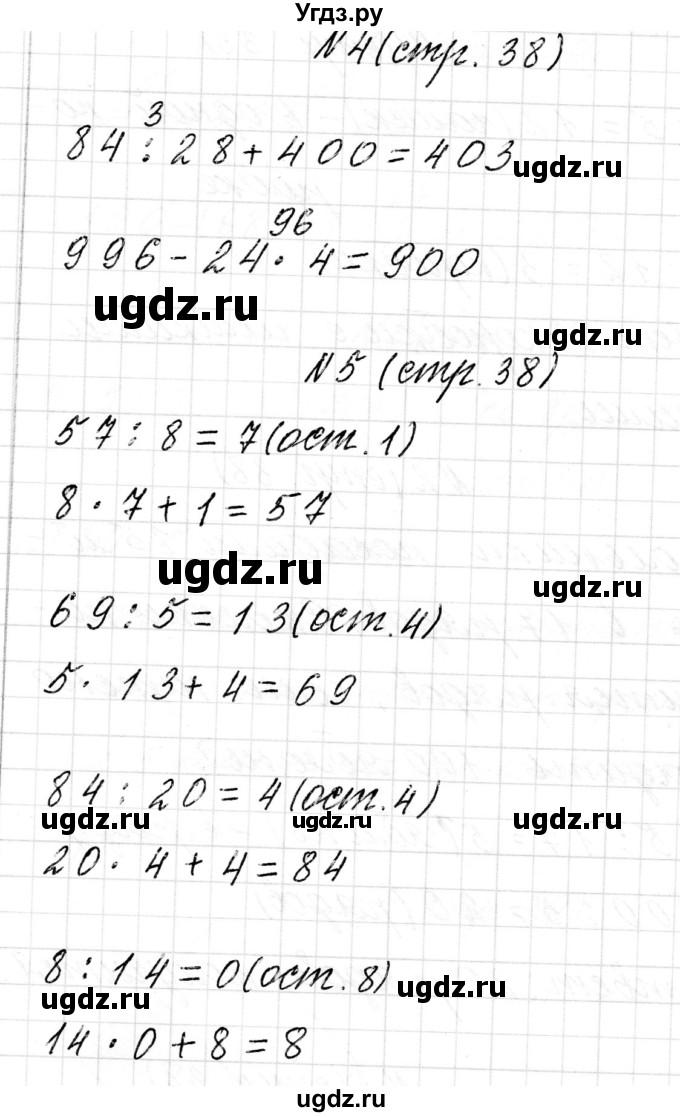 Угдз.ру
№4 (стр. 38)
3
84 : 28 + 400 = 403
ugdz.ru
96
996 - 24 · 4 = 900
ugdz.ru
ugdz.ru
№5 (стр. 38)
57 : 8 = 7 (ост. 1)
ugdz.ru
8 · 7 + 1 = 57
ugdz.ru
ugdz.ru
69 : 5 = 13 (ост. 4)
5 · 13 + 4 = 69
84 : 20 = 4 (ост. 4)
ugdz.ru ugdz.ru ugdz.ru
20 · 4 + 4 = 84
8 : 14 = 0 (ост. 8)
ugdz.ru ugdz.ru
14 · 0 + 8 = 8
ugdz.ru